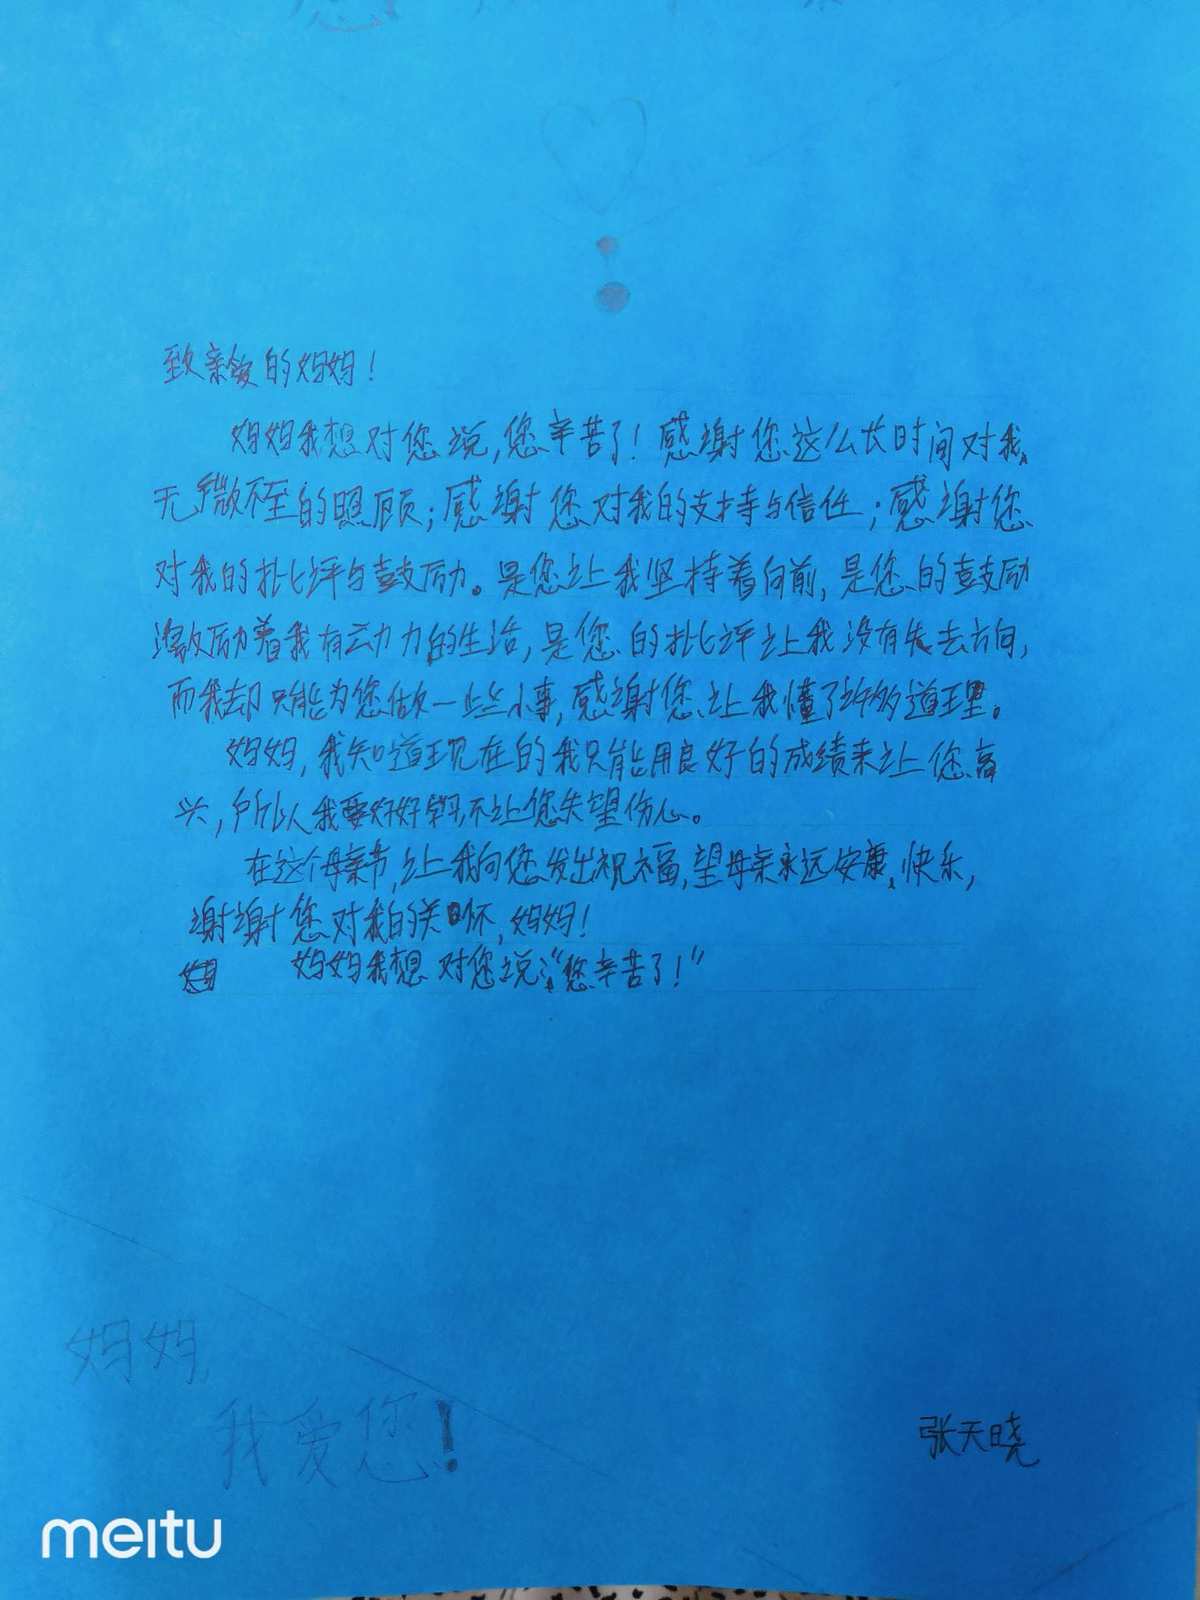 致亲爱的妈妈！
妈妈我想对您说，您辛苦了！感谢您这么长时间对我
无微不至的照顾；感谢您对我的支持与信任；感谢您
对我的批评与鼓励。是您让我坚持着向前，是您的鼓励
激励着我有动力的生活，是您的批评让我没有失去方向，
而我却只能为您做一些小事，感谢您让我懂了许多道理。
妈妈，我知道现在的我只能用良好的成绩来让您高
兴，所以我要好好学习不让您失望伤心。
在这个母亲节，让我向您发出祝福，望母亲永远安康、快乐，
谢谢您对我的关怀，妈妈！
妈妈我想对您说：“您辛苦了！”
妈妈，
我爱您！
张天晓
meitu